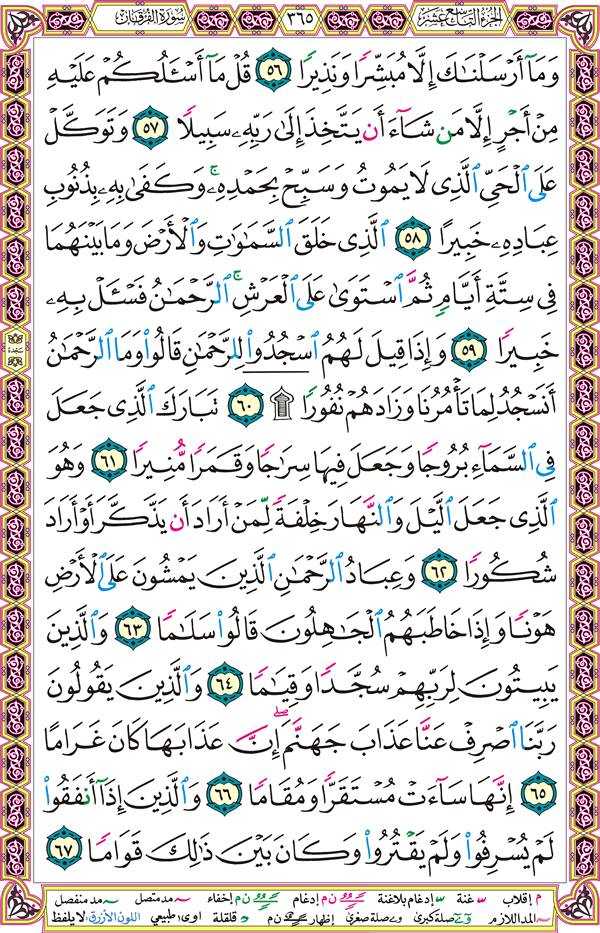 الجزء التاسع عشر
٣٦٥
سورة الفرقان
وَمَآ أَرْسَلْنَـٰكَ إِلَّا مُبَشِّرًا وَنَذِيرًا ٥٦ قُلْ مَآ أَسْـَٔلُكُمْ عَلَيْهِ
مِنْ أَجْرٍ إِلَّا مَن شَآءَ أَن يَتَّخِذَ إِلَىٰ رَبِّهِۦ سَبِيلًا ٥٧ وَتَوَكَّلْ
عَلَى ٱلْحَىِّ ٱلَّذِى لَا يَمُوتُ وَسَبِّحْ بِحَمْدِهِۦۚ وَكَفَىٰ بِهِۦ بِذُنُوبِ
عِبَادِهِۦ خَبِيرًا ٥٨ ٱلَّذِى خَلَقَ ٱلسَّمَـٰوَٰتِ وَٱلْأَرْضَ وَمَا بَيْنَهُمَا
فِى سِتَّةِ أَيَّامٍ ثُمَّ ٱسْتَوَىٰ عَلَى ٱلْعَرْشِۚ ٱلرَّحْمَـٰنُ فَسْـَٔلْ بِهِۦ
خَبِيرًا ٥٩ وَإِذَا قِيلَ لَهُمُ ٱسْجُدُوا۟ لِلرَّحْمَـٰنِ قَالُوا۟ وَمَا ٱلرَّحْمَـٰنُ
أَنَسْجُدُ لِمَا تَأْمُرُنَا وَزَادَهُمْ نُفُورًا ۩ ٦٠ تَبَارَكَ ٱلَّذِى جَعَلَ
فِى ٱلسَّمَآءِ بُرُوجًا وَجَعَلَ فِيهَا سِرَٰجًا وَقَمَرًا مُّنِيرًا ٦١ وَهُوَ
ٱلَّذِى جَعَلَ ٱلَّيْلَ وَٱلنَّهَارَ خِلْفَةً لِّمَنْ أَرَادَ أَن يَذَّكَّرَ أَوْ أَرَادَ
شُكُورًا ٦٢ وَعِبَادُ ٱلرَّحْمَـٰنِ ٱلَّذِينَ يَمْشُونَ عَلَى ٱلْأَرْضِ
هَوْنًا وَإِذَا خَاطَبَهُمُ ٱلْجَـٰهِلُونَ قَالُوا۟ سَلَـٰمًا ٦٣ وَٱلَّذِينَ
يَبِيتُونَ لِرَبِّهِمْ سُجَّدًا وَقِيَـٰمًا ٦٤ وَٱلَّذِينَ يَقُولُونَ
رَبَّنَا ٱصْرِفْ عَنَّا عَذَابَ جَهَنَّمَۖ إِنَّ عَذَابَهَا كَانَ غَرَامًا
٦٥ إِنَّهَا سَآءَتْ مُسْتَقَرًّا وَمُقَامًا ٦٦ وَٱلَّذِينَ إِذَآ أَنفَقُوا۟
لَمْ يُسْرِفُوا۟ وَلَمْ يَقْتُرُوا۟ وَكَانَ بَيْنَ ذَٰلِكَ قَوَامًا ٦٧
سجدة
م إقلاب غنة إدغام بلاغنة ن م إدغام ن م إخفاء مد متصل مد منفصل
المد اللازم صلة كبرى صلة صغرى إظهار ن م قلقلة اوى طبيعي اللون الأزرق: لا يلفظ